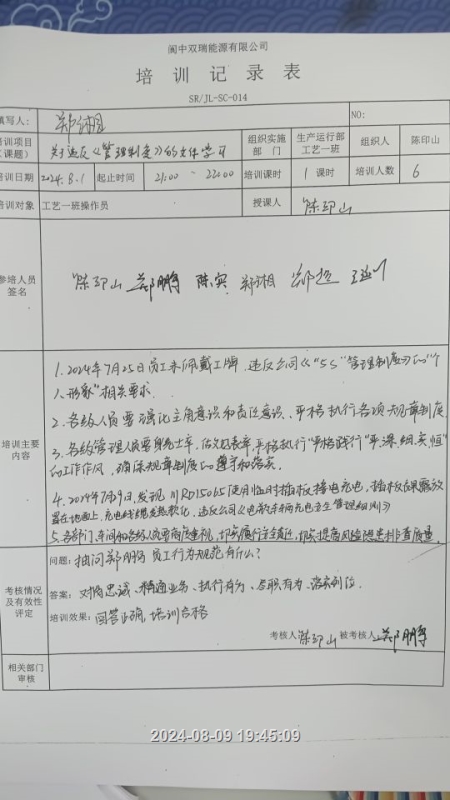 阆中双瑞能源有限公司
培训记录表
SR/JL-SC-014
填写人: 郑湘 NO:
培训项目（课题） 关于违反《管理制度》的文件学习 组织实施部门 生产运行部工艺一班 组织人 陈印山
培训日期 2024.8.1 起止时间 21:00 ~ 22:00 培训课时 1 课时 培训人数 6
培训对象 工艺一班操作员 授课人 陈印山
参培人员签名 陈印山 郑鹏 陈宾 郑湘
培训主要内容
1.2024年7月25日员工未佩戴工牌，违反公司《"5S"管理制度》的"个
人形象"相关要求.
2.各级人员要强化主角意识和责任意识、严格执行各项规章制度
3.各级管理人员要身先士卒，严格执行"严格践行"严、深、细、实、恒"
的工作作风，确保规章制度的遵守和落实.
4.2024年7月9日，发现川RD15065使用临时插板接电充电，插板保露放
置在地面上，充电线缆发热软化，违反公司《电动车辆充电安全管理细则》
5.各部门、车间和各级人员要高度重视，切实履行主责，切实提高风险隐患排查质量.
考核情况及有效性评定
问题: 抽问郑鹏 员工行为规范有什么?
答案: 对得忠诚、精通业务、执行有力、尽职有为、落实到位.
培训效果: 回答正确，培训合格
考核人 陈印山 被考核人 郑鹏
相关部门审核
2024-08-09 19:45:09